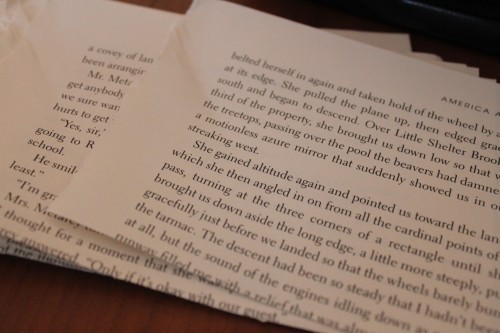 a covey of lan
been arrangin
Mr. Meta
get anybody
we sure wan
hurts to get
"Yes, sir,
going to R
school.
He smil
least."
"I'm gr
Mrs. Metary
thought for a moment that
answered. "Only if it's okay with our guest
AMERICA A
belted herself in again and taken hold of the wheel by
at its edge. She pulled the plane up, then edged grac
south and began to descend. Over Little Shelter Broo
third of the property, she brought us down low so that w
the treetops, passing over the pool the beavers had damne
a motionless azure mirror that suddenly showed us in ou
streaking west.
She gained altitude again and pointed us toward the lan
which she then angled in on from all the cardinal points of
pass, turning at the three corners of a rectangle until s
brought us down aside the long edge, a little more steeply, p
gracefully just before we landed so that the wheels barely bu
the tarmac. The descent had been so steady that I hadn't b
at all, but the sound of the engines idling down as
runway filled me with a relief that was